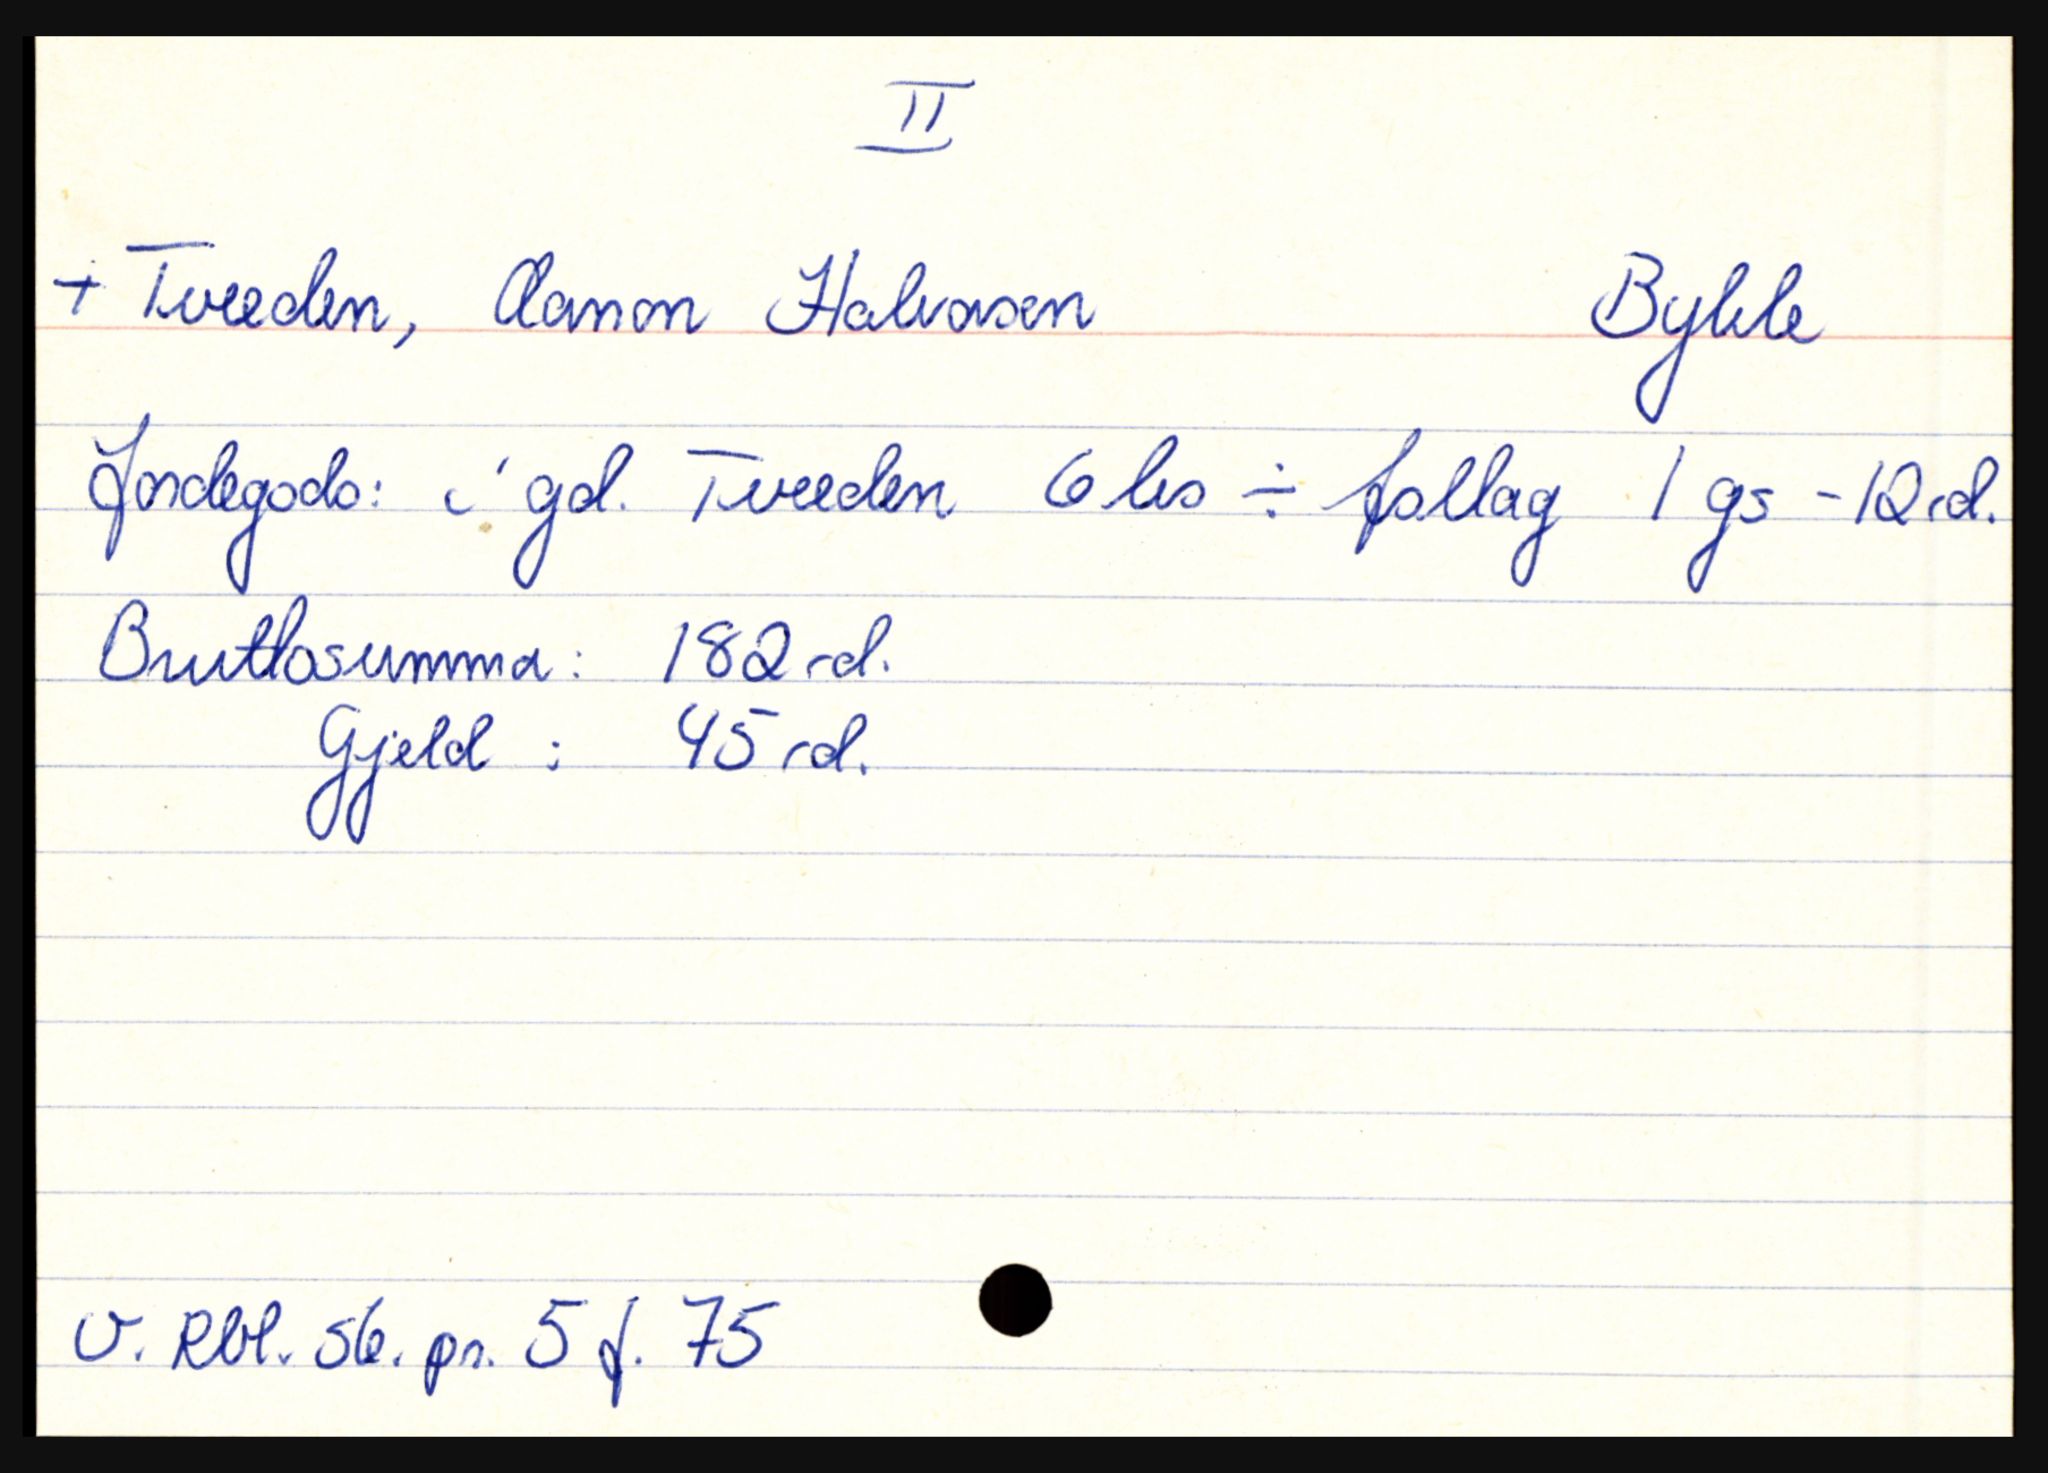 II
+ Tveeden, Aanon Halvorsen Bykle
Jordegods: i gd. Tveeden 6 hs ÷ follag 1 gs - 12 rd.
Bruttosumma: 182 rd.
Gjeld : 45 rd.
V. Rbl. sk. pr. 5 f. 75